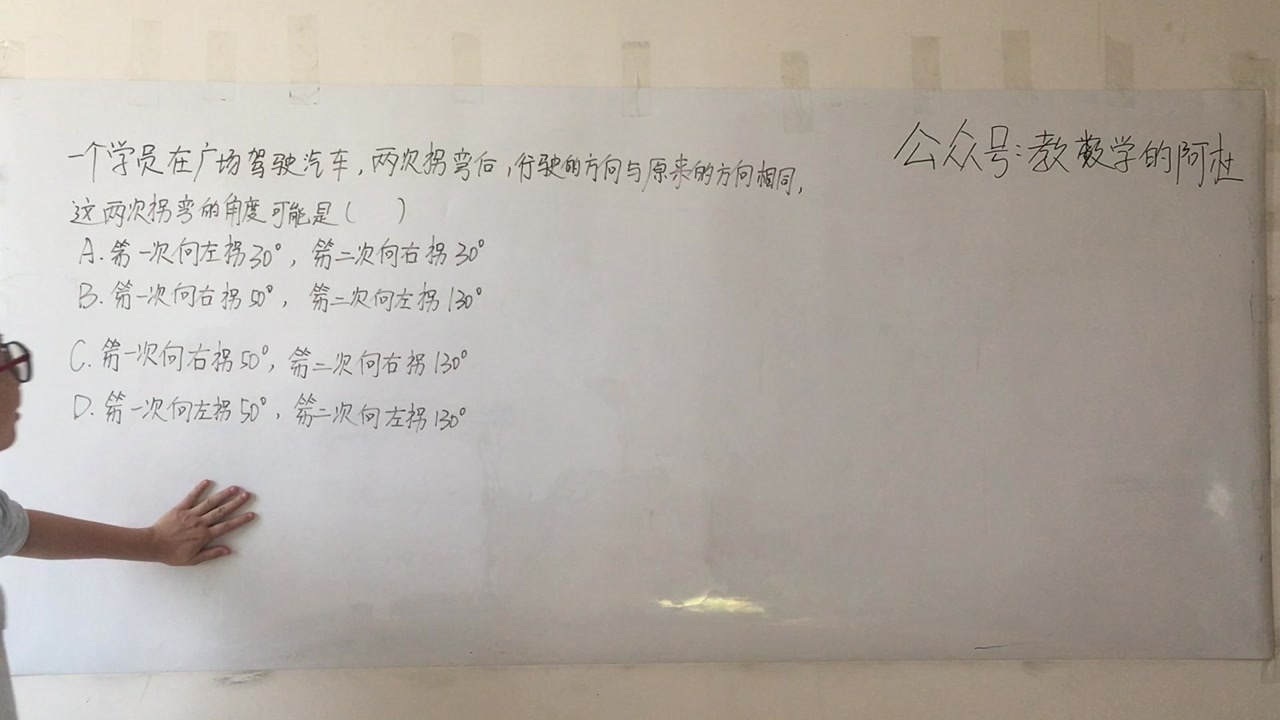 一个学员在广场驾驶汽车，两次拐弯后，行驶的方向与原来的方向相同，
这两次拐弯的角度可能是（ ）
A. 第一次向左拐30°，第二次向右拐30°
B. 第一次向右拐50°，第二次向左拐130°
C. 第一次向右拐50°，第二次向右拐130°
D. 第一次向左拐50°，第二次向左拐130°
公众号：教数学的阿杜